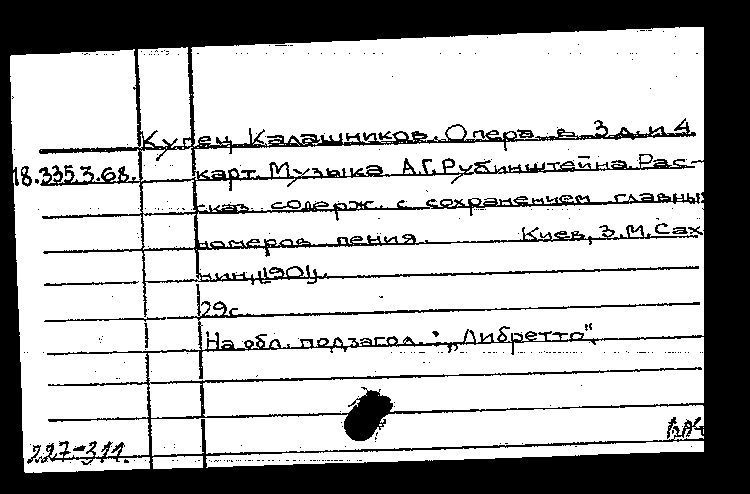 Купец Калашников. Опера в 3 д. и 4
18.335.3.68. карт. Музыка А.Г. Рубинштейна. Рас-
сказ содерж. с сохранением главных
номеров пения. Киев, З.М. Сах
нин, [1901].
29с.
На обл. подзагол.: „Либретто".
227-311.